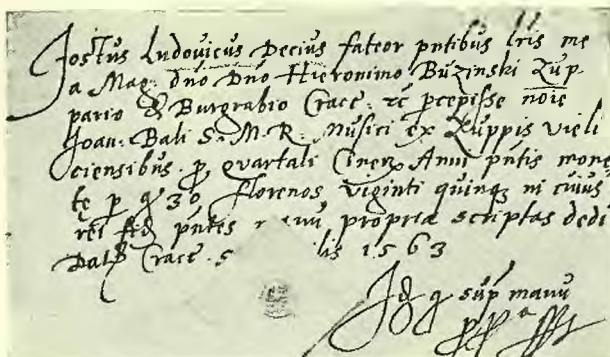 Jostus Ludovicus Decius fateor pntibus lris me
a Mag: dno Dno Hieronimo Buzinski Zup-
pario & Burgrabio Cracc. percepisse noie
Joan. Bali S. M. R. Musici ex Zuppis vieli
ciensibus. p. quartali Ciner Anni pntis mone
te p g 30 florenos viginti quinq in cuius
rei fid pntes manu propria scriptas dedi
Dat Cracc. 1563
Id q sup manu